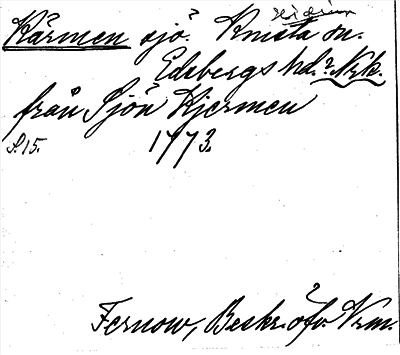 Kärmen sjö. Knista sn.
Edsbergs hd. Nrk.
från Sjön Kjermen
S. 15. 1773.
Fernow, Beskr. öfv. Vrm.